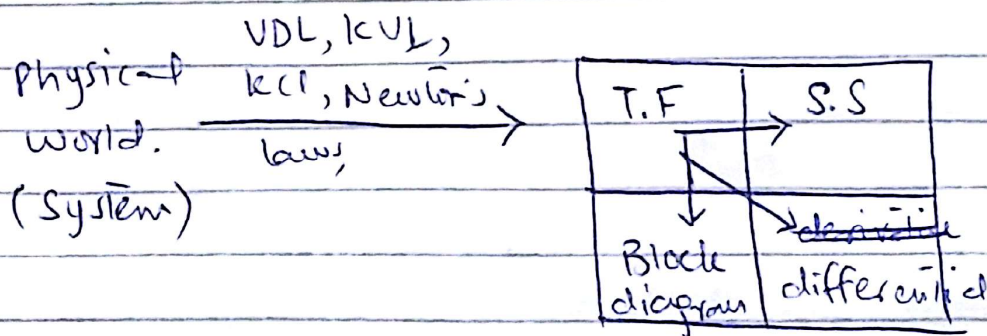 Physical
world.
(System)
VDL, KVL,
KCl, Newton's
laws,
T.F
S.S
Block
diagram
derivative
differential